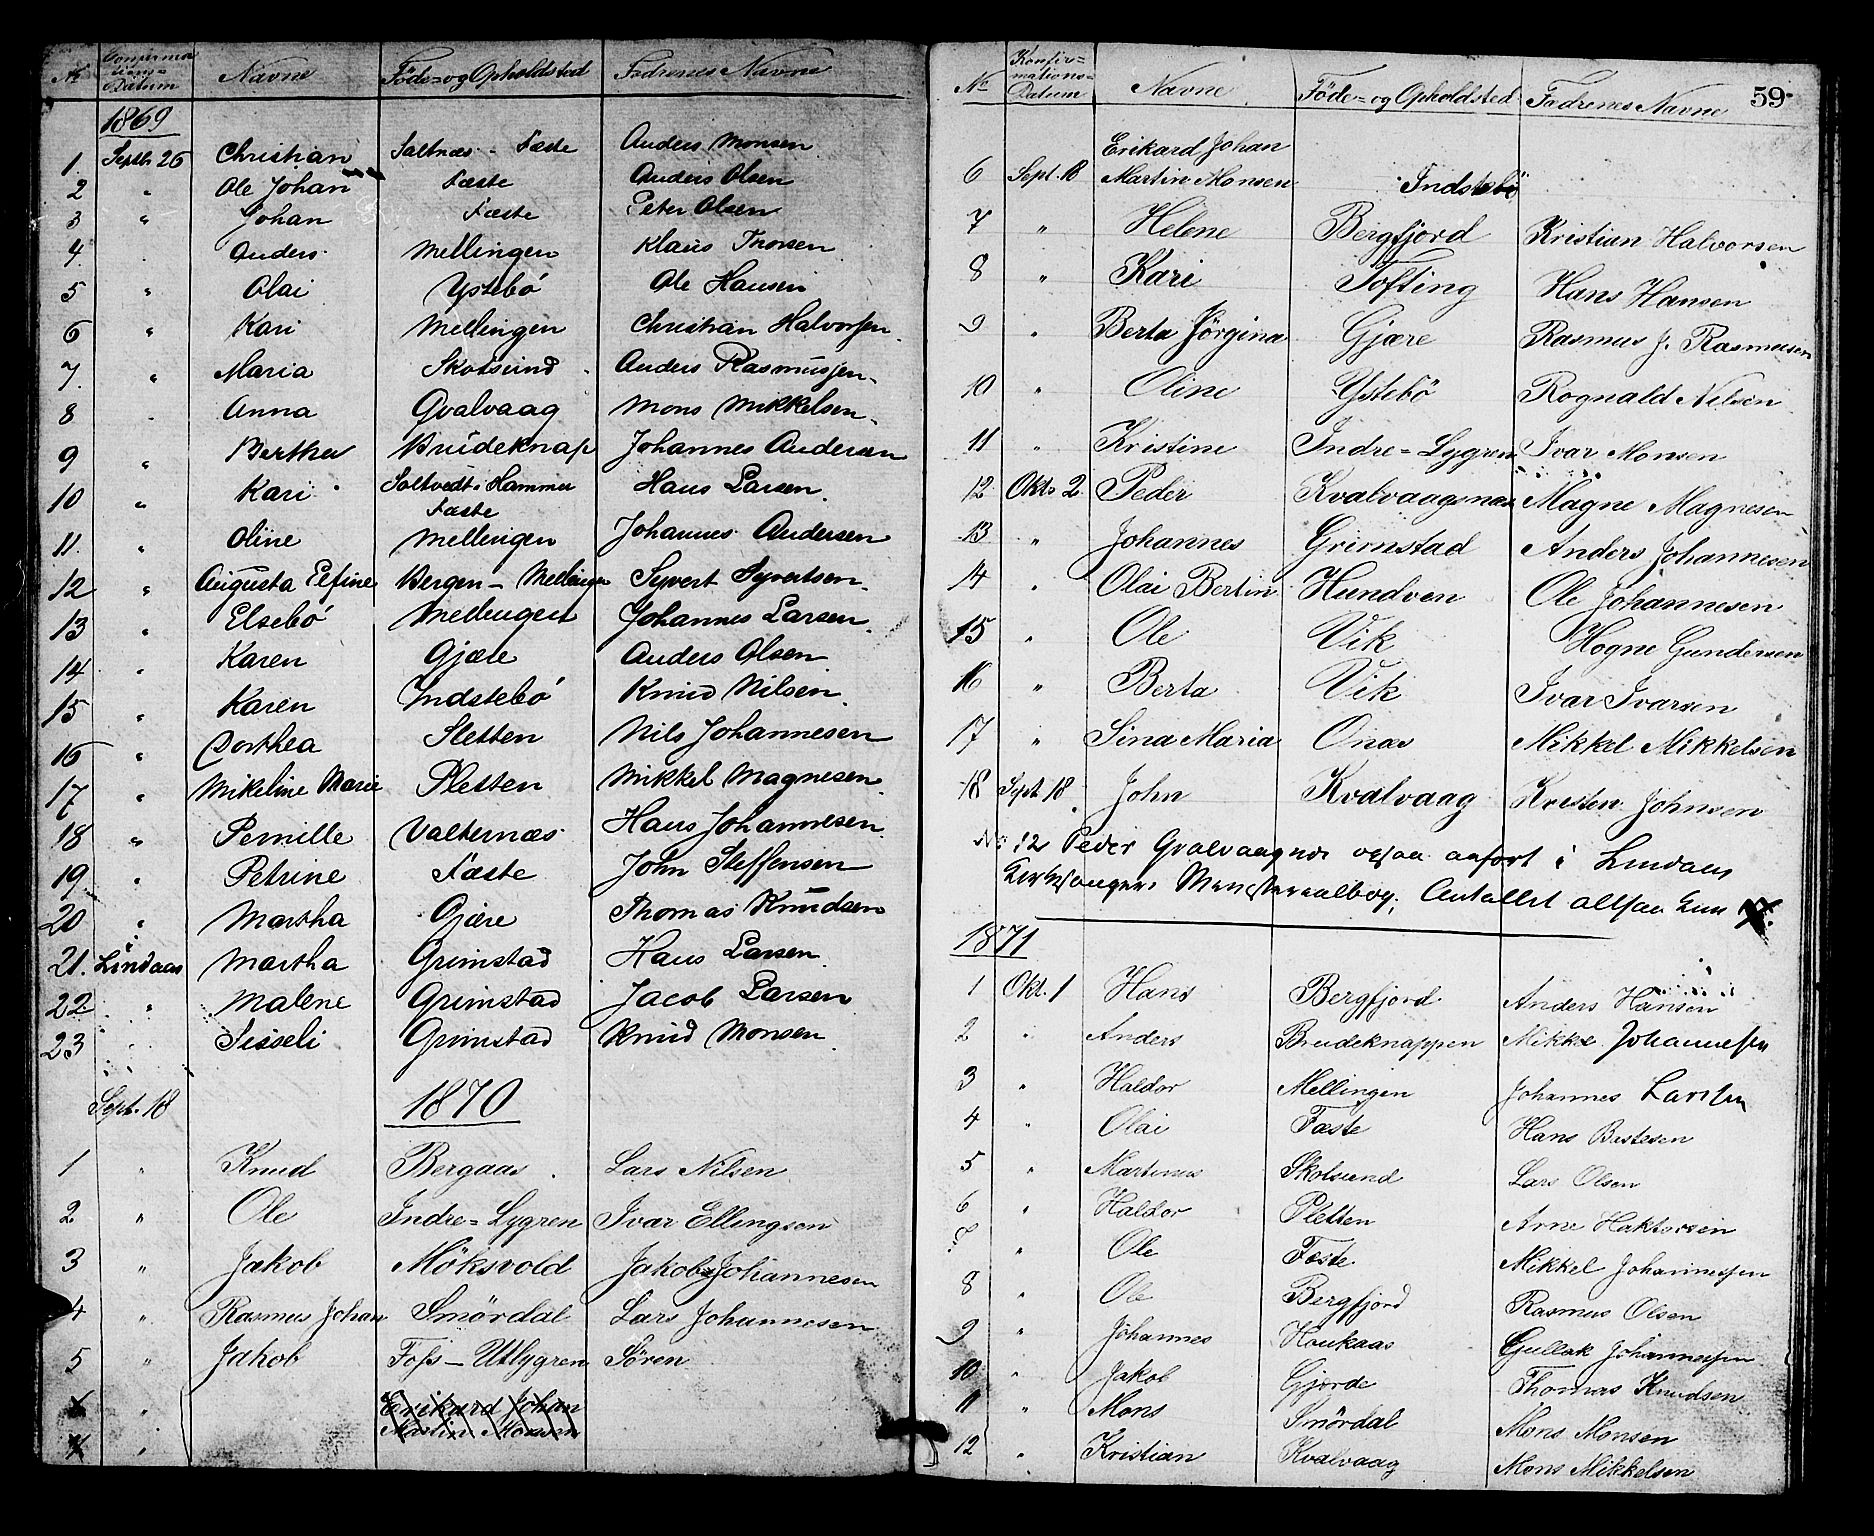 No Confirmations=Datum Navne Föde=og Opholdsted Fædrenes Navne
1869
1. Septbr 26 Christian Saltnæs - Fæste Anders Monsen
2 " Ole Johan Fæste Anders Olsen
3 " Johan Fæste Peter Olsen
4. Anders Mellingen Klaus Thorsen
5 " Olai Ystebö Ole Hansen
6 " Kari Mellingen Christian Halvorsen
7. " Maria Skotsund Anders Rasmussen
8 Anna Qvalvaag Mons Mikkelsen
9 " Berthe Brudeknap Johannes Andersen
10 " Kari Hammer Hans Larsen
Fæste
11. " Oline Mellingen Johannes Andersen
12 " Augusta Petine Bergen - Mellingen Syvert Syvertsen
13 " Elsebö Mellingen Johannes Larsen
14 " Karen Gjære Anders Olsen
15 " Karen Indstebö Knud Nilsen
16 " Dorthea Sletten Nils Johannesen
17 " Mikeline Marie Pletten Mikkel Magnesen
18 " Pernille Valternæs Hans Johannesen
19 " Petrine Fæste John Steffensen
20 " Martha Gjære Thomas Knudsen
21. Lindaas Martha Grimstad Hans Larsen
22 " Malene Grimstad Jacob Larsen
23 Sisseli Grimstad Knud Monsen
Sept. 18 1870
1 " Knud Bergaas Lars Nilsen
2 " Ole Indre=Lygren Ivar Ellingsen
3 " Jakob Möksvold Jakob Johannesen
4 " Rasmus Johan Smördal Lars Johannesen
5 " Jakob Foss - Utlygren Sören
" Erikard Johan
" Martin Monsen
59
No Konfirmations=Datum Navne Föde=og Opholdsted Fædrenes Navne
Erikard Johan
6 Sept. 18 Martin Monsen Indstebö
7 " Helene Bergfjord Kristian Halvorsen
8 " Kari Tofting Hans Hansen
9 " Berta Jörgine Gjære Rasmus J. Rasmusen
10 " Oline Ystebö Rognald Nilsen
11 " Kristine Indre=Lygren Ivar Monsen
12 Okt. 2 Peder Kvalvaagsnæs Magne Magnesen
13 " Johannes Grimstad Anders Johannesen
14 " Olai Bertin Hundven Ole Johannesen
15 " Ole Vik Hogne Gundersen
16 " Berta Vik Ivar Ivarsen
17 " Sina Maria Onæs Mikkel Mikkelsen
18 Sept 18 John Kvalvaag Kristen Johnsen
No 12 Peder Qvalvaagnæs ogsaa anført i Lindaas
Kirkesangers Ministerialbog; Antallet altsaa kun
1871
1 Okt. 1 Hans Bergfjord Anders Hansen
2 " Anders Brudeknappen Mikkel Johannessen
3 " Haldor Mellingen Johannes Larsen
4 " Olai Fæste Hans Bertesen
5 " Martinus Skotsund Lars Olsen
6 " Haldor Pletten Arne Haktorsen
7 " Ole Fæste Mikkel Johannessen
8 " Ole Bergfjord Rasmus Olsen
9 " Johannes Houkaas Gullak Johannessen
10 " Jakob Gjerde Thomas Knudsen
11 " Mons Smördal Mons Monsen
12 " Kristian Kvalvaag Mons Mikkelsen